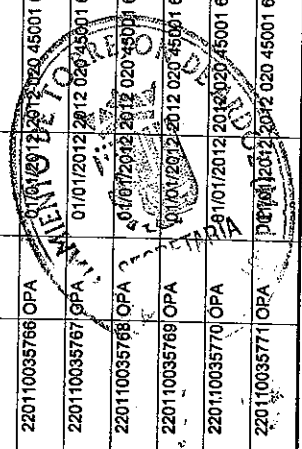 220110035766 OPA 01/01/2012 2012 020 45001 6
220110035767 OPA 01/01/2012 2012 020 45001 6
220110035768 OPA 01/01/2012 2012 020 45001 6
220110035769 OPA 01/01/2012 2012 020 45001 6
220110035770 OPA 01/01/2012 2012 020 45001 6
220110035771 OPA 01/01/2012 2012 020 45001 6
MIENTO DE TORREJON DE ARDO